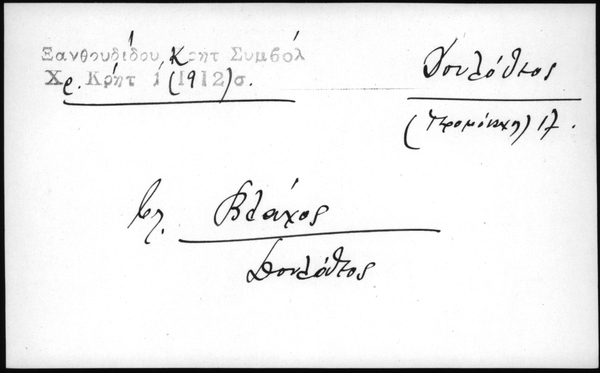 Ξανθουδίδου Κρητ Συμβόλ
Χρ. Κρήτ 1 (1912) σ.
Δουλόθεος
(Ἱερομόναχος) 17.
βλ. Βλάχος
Δουλόθεος